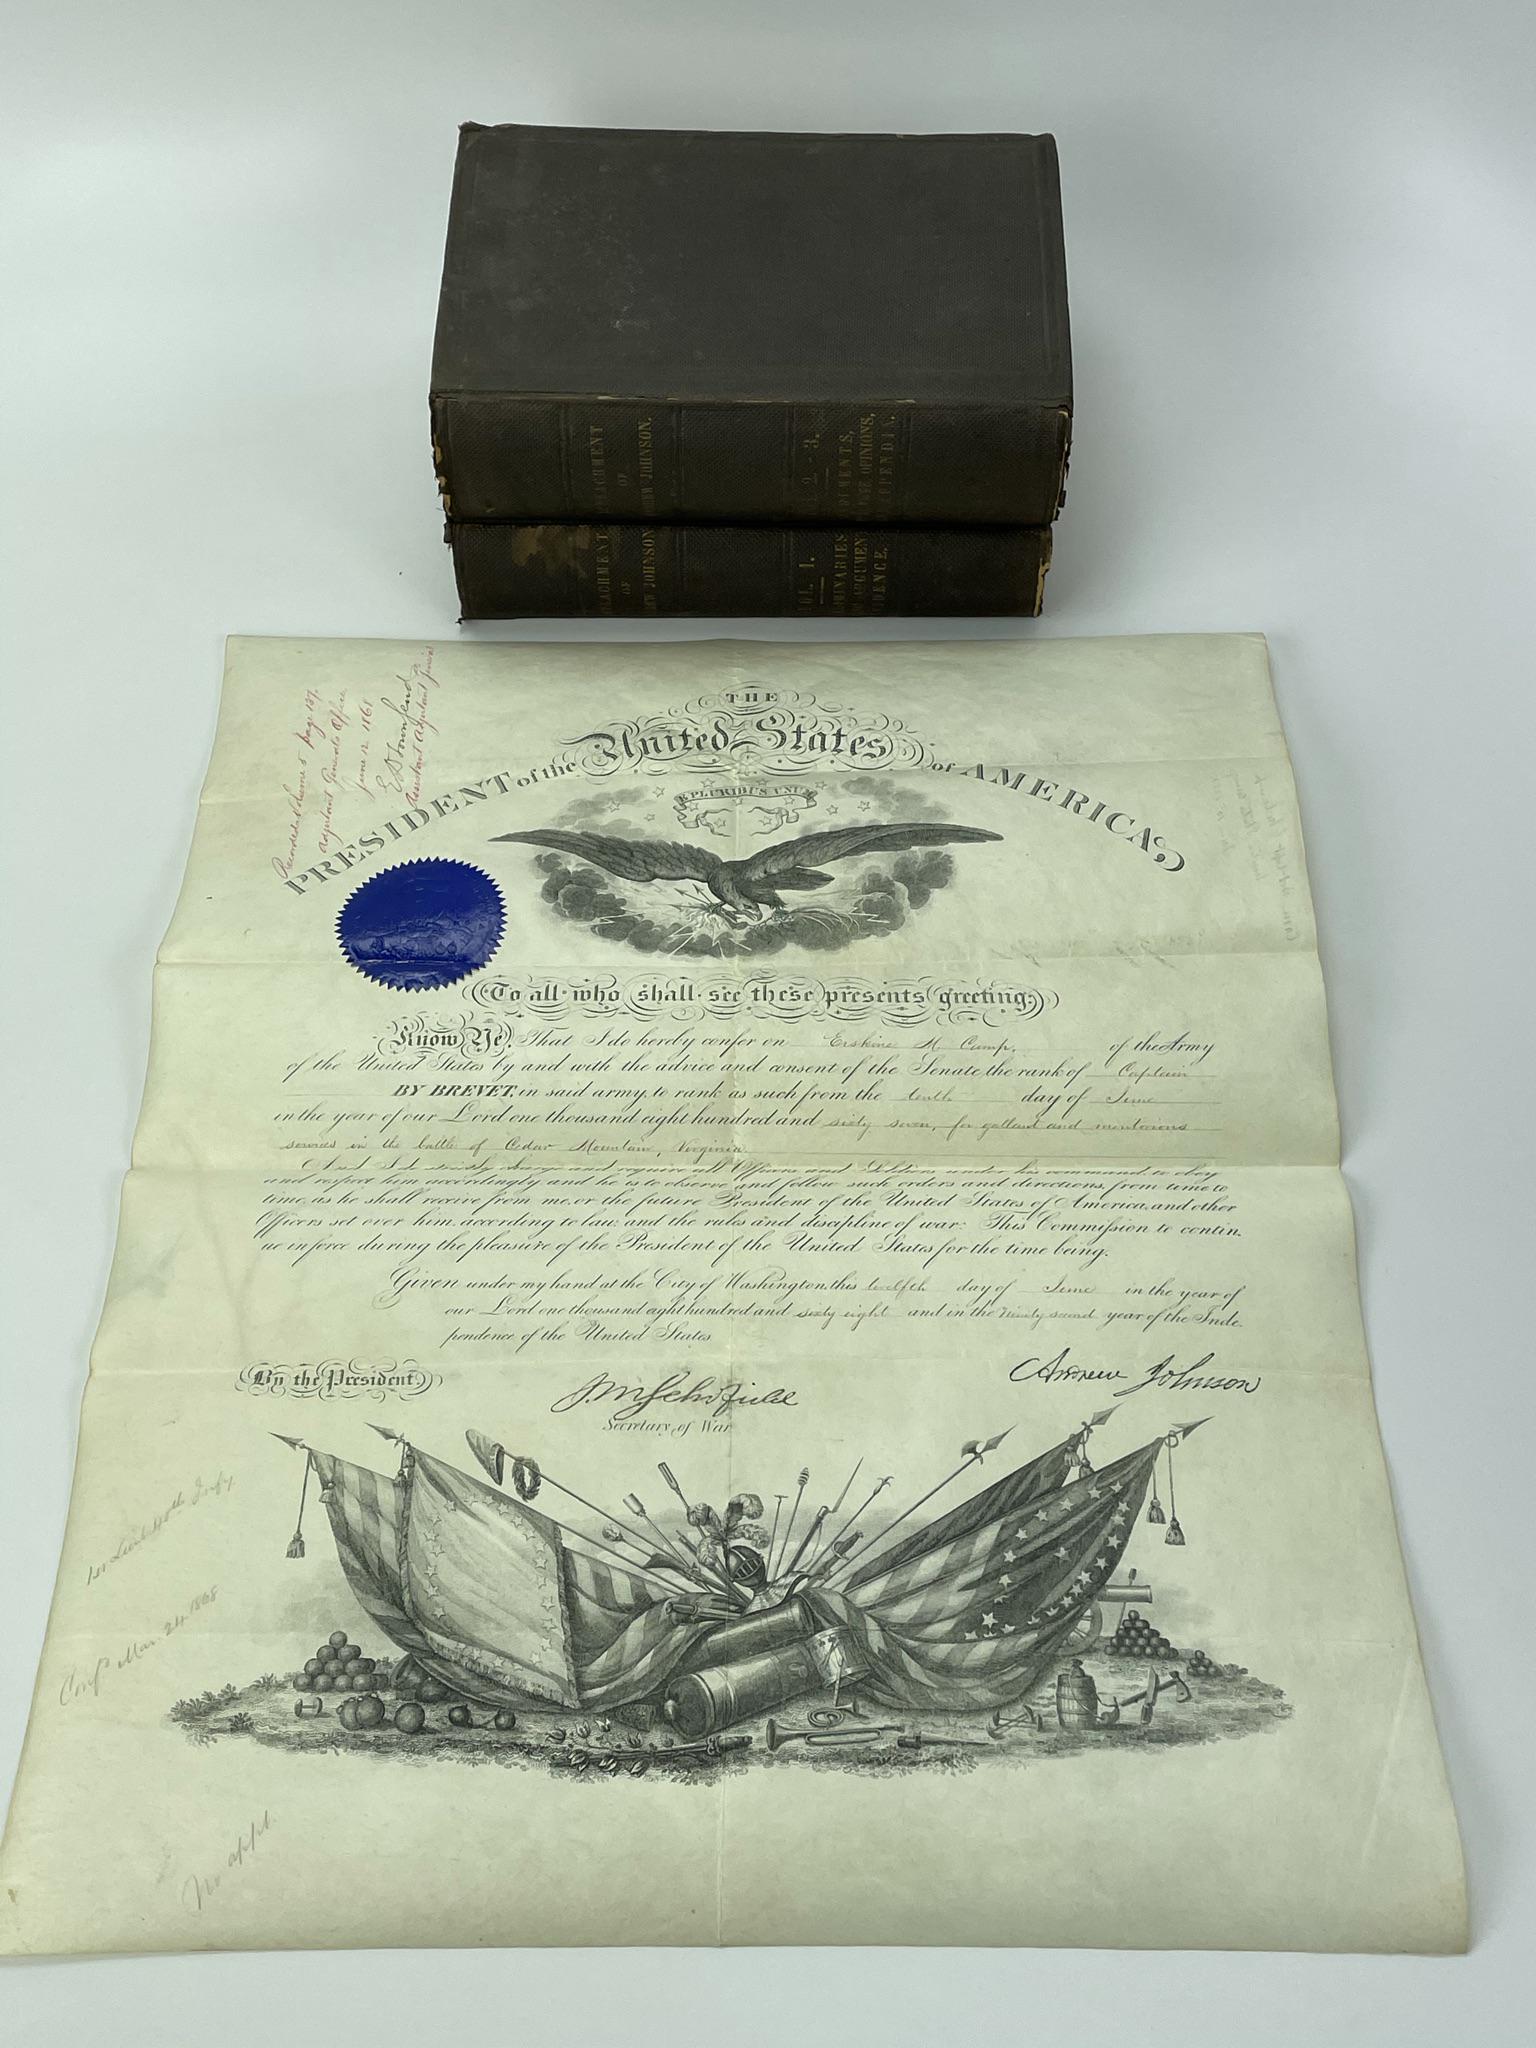 IMPEACHMENT
OF
ANDREW JOHNSON.
VOL. 2 - 3.
OPINIONS,
APPENDIX.
IMPEACHMENT
OF
ANDREW JOHNSON
VOL. 1.
Recorded Volume 5 Page 137.
Adjutant Generals Office
June 12 1868
E D Townsend
Assistant Adjutant General
THE
PRESIDENT of the United States of AMERICA,
E PLURIBUS UNUM
To all who shall see these presents greeting:
Know Ye, That I do hereby confer on Erskine M. Camp, of the Army
of the United States by and with the advice and consent of the Senate, the rank of Captain
BY BREVET, in said army, to rank as such from the tenth day of June
in the year of our Lord one thousand eight hundred and sixty seven, for gallant and meritorious
services in the battle of Cedar Mountain, Virginia.
And I do strictly charge and require all Officers and Soldiers under his command to obey
and respect him accordingly and he is to observe and follow such orders and directions, from time to
time, as he shall receive from me, or the future President of the United States of America, and other
Officers set over him, according to law; and the rules and discipline of war: This Commission to contin-
ue in force during the pleasure of the President of the United States for the time being.
Given under my hand at the City of Washington, this twelfth day of June in the year of
our Lord one thousand eight hundred and sixty eight and in the Ninety second year of the Inde-
pendence of the United States
By the President,
Andrew Johnson
J.M. Schofield
Secretary of War
1st Lieut 40th Infy.
Conf'd Mar. 24. 1868
No appt.